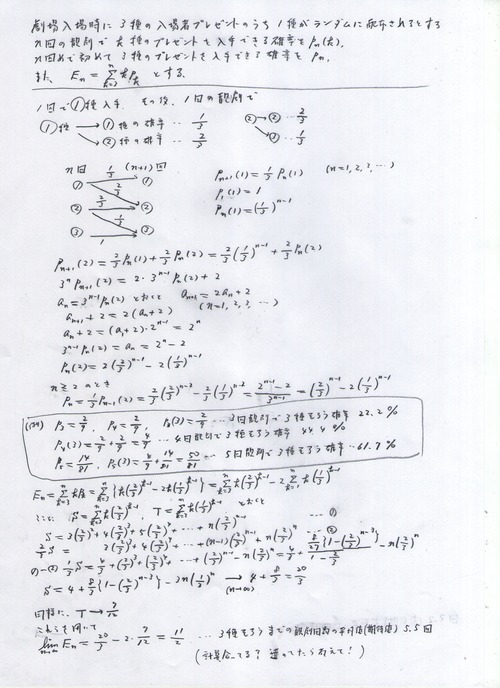 劇場入場時に3種の入場者プレゼントのうち1種がランダムに配布されるとする
n回の観劇で k種のプレゼントを入手できる確率を Pn(k),
n回めで初めて3種のプレゼントを入手できる確率を Pn,
また、 En = Σ[k=3→n] kPk とする.
1回で①種入手, その後, 1回の観劇で
①種 → ①種の確率 … 1/3
→ ②種の確率 … 2/3
②→② … 2/3
→③ … 1/3
n回 (n+1)回
① 1/3 ①
2/3
② 2/3 ②
1/3
③ 1 ③
Pn+1(1) = 1/3 Pn(1) (n=1,2,3,…)
P1(1) = 1
Pn(1) = (1/3)^(n-1)
Pn+1(2) = 2/3 Pn(1) + 2/3 Pn(2) = 2/3 (1/3)^(n-1) + 2/3 Pn(2)
3^n Pn+1(2) = 2・3^(n-1) Pn(2) + 2
an = 3^(n-1) Pn(2) とおくと an+1 = 2an + 2
(n=1,2,3,…)
an+1 + 2 = 2(an + 2)
an + 2 = (a1 + 2)・2^(n-1) = 2^n
3^(n-1) Pn(2) = an = 2^n - 2
Pn(2) = 2(2/3)^(n-1) - 2(1/3)^(n-1)
n≧2のとき
Pn = 1/3 Pn-1(2) = 2/3 (2/3)^(n-2) - 2/3 (1/3)^(n-2) = (2^(n-1) - 2)/3^(n-1) = (2/3)^(n-1) - 2(1/3)^(n-1)
(例) P3 = 2/9, P4 = 2/9, P3(3) = 2/9 … 3回観劇で3種そろう確率 22.2%
P4(3) = 2/9 + 2/9 = 4/9 … 4回観劇で3種そろう確率 44.4%
P5 = 14/81, P5(3) = 4/9 + 14/81 = 50/81 … 5回観劇で3種そろう確率 … 61.7%
En = Σ[k=3→n] kPk = Σ[k=3→n] {k(2/3)^(k-1) - 2k(1/3)^(k-1)} = Σ[k=3→n] k(2/3)^(k-1) - 2Σ[k=3→n] k(1/3)^(k-1)
ここに S = Σ[k=3→n] k(2/3)^(k-1), T = Σ[k=3→n] k(1/3)^(k-1) とおくと
S = 3(2/3)^2 + 4(2/3)^3 + 5(2/3)^4 + … + n(2/3)^(n-1) … ①
2/3 S = 3(2/3)^3 + 4(2/3)^4 + … + (n-1)(2/3)^(n-1) + n(2/3)^n … ②
①-② 1/3 S = 4/3 + (2/3)^3 + (2/3)^4 + … + (2/3)^(n-1) - n(2/3)^n = 4/3 + 8/27 {1 - (2/3)^(n-3)} / (1 - 2/3) - n(2/3)^n
S = 4 + 8/3 {1 - (2/3)^(n-3)} - 3n(2/3)^n → 4 + 8/3 = 20/3
(n→∞)
同様に T → 7/12
これらを用いて
lim[n→∞] En = 20/3 - 2・7/12 = 11/2 … 3種そろうまでの観劇回数の平均値(期待値) 5.5回
(計算合ってる? 違ってたら教えて!)